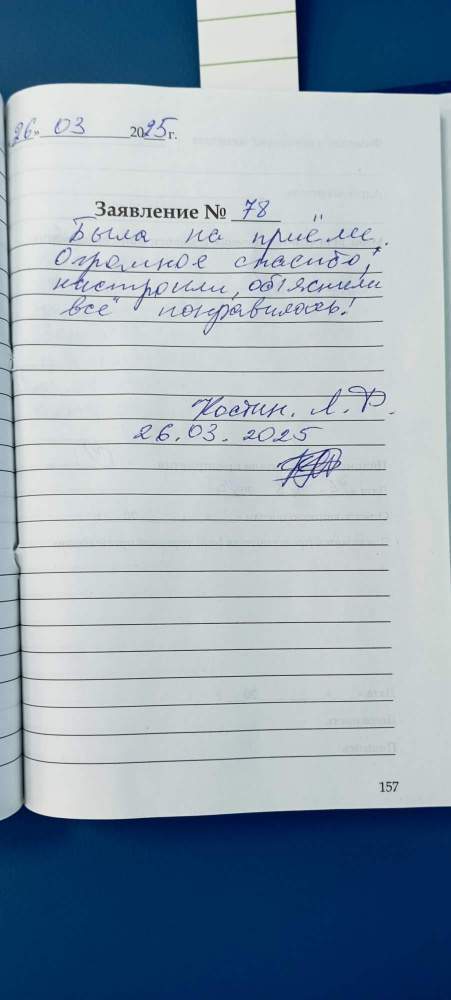 26» 03 2025 г.
Заявление № 78
Была на приёме.
Огромное спасибо,
настроили, объяснили
всё понравилось!
Костин. Л. Ф.
26.03.2025
157